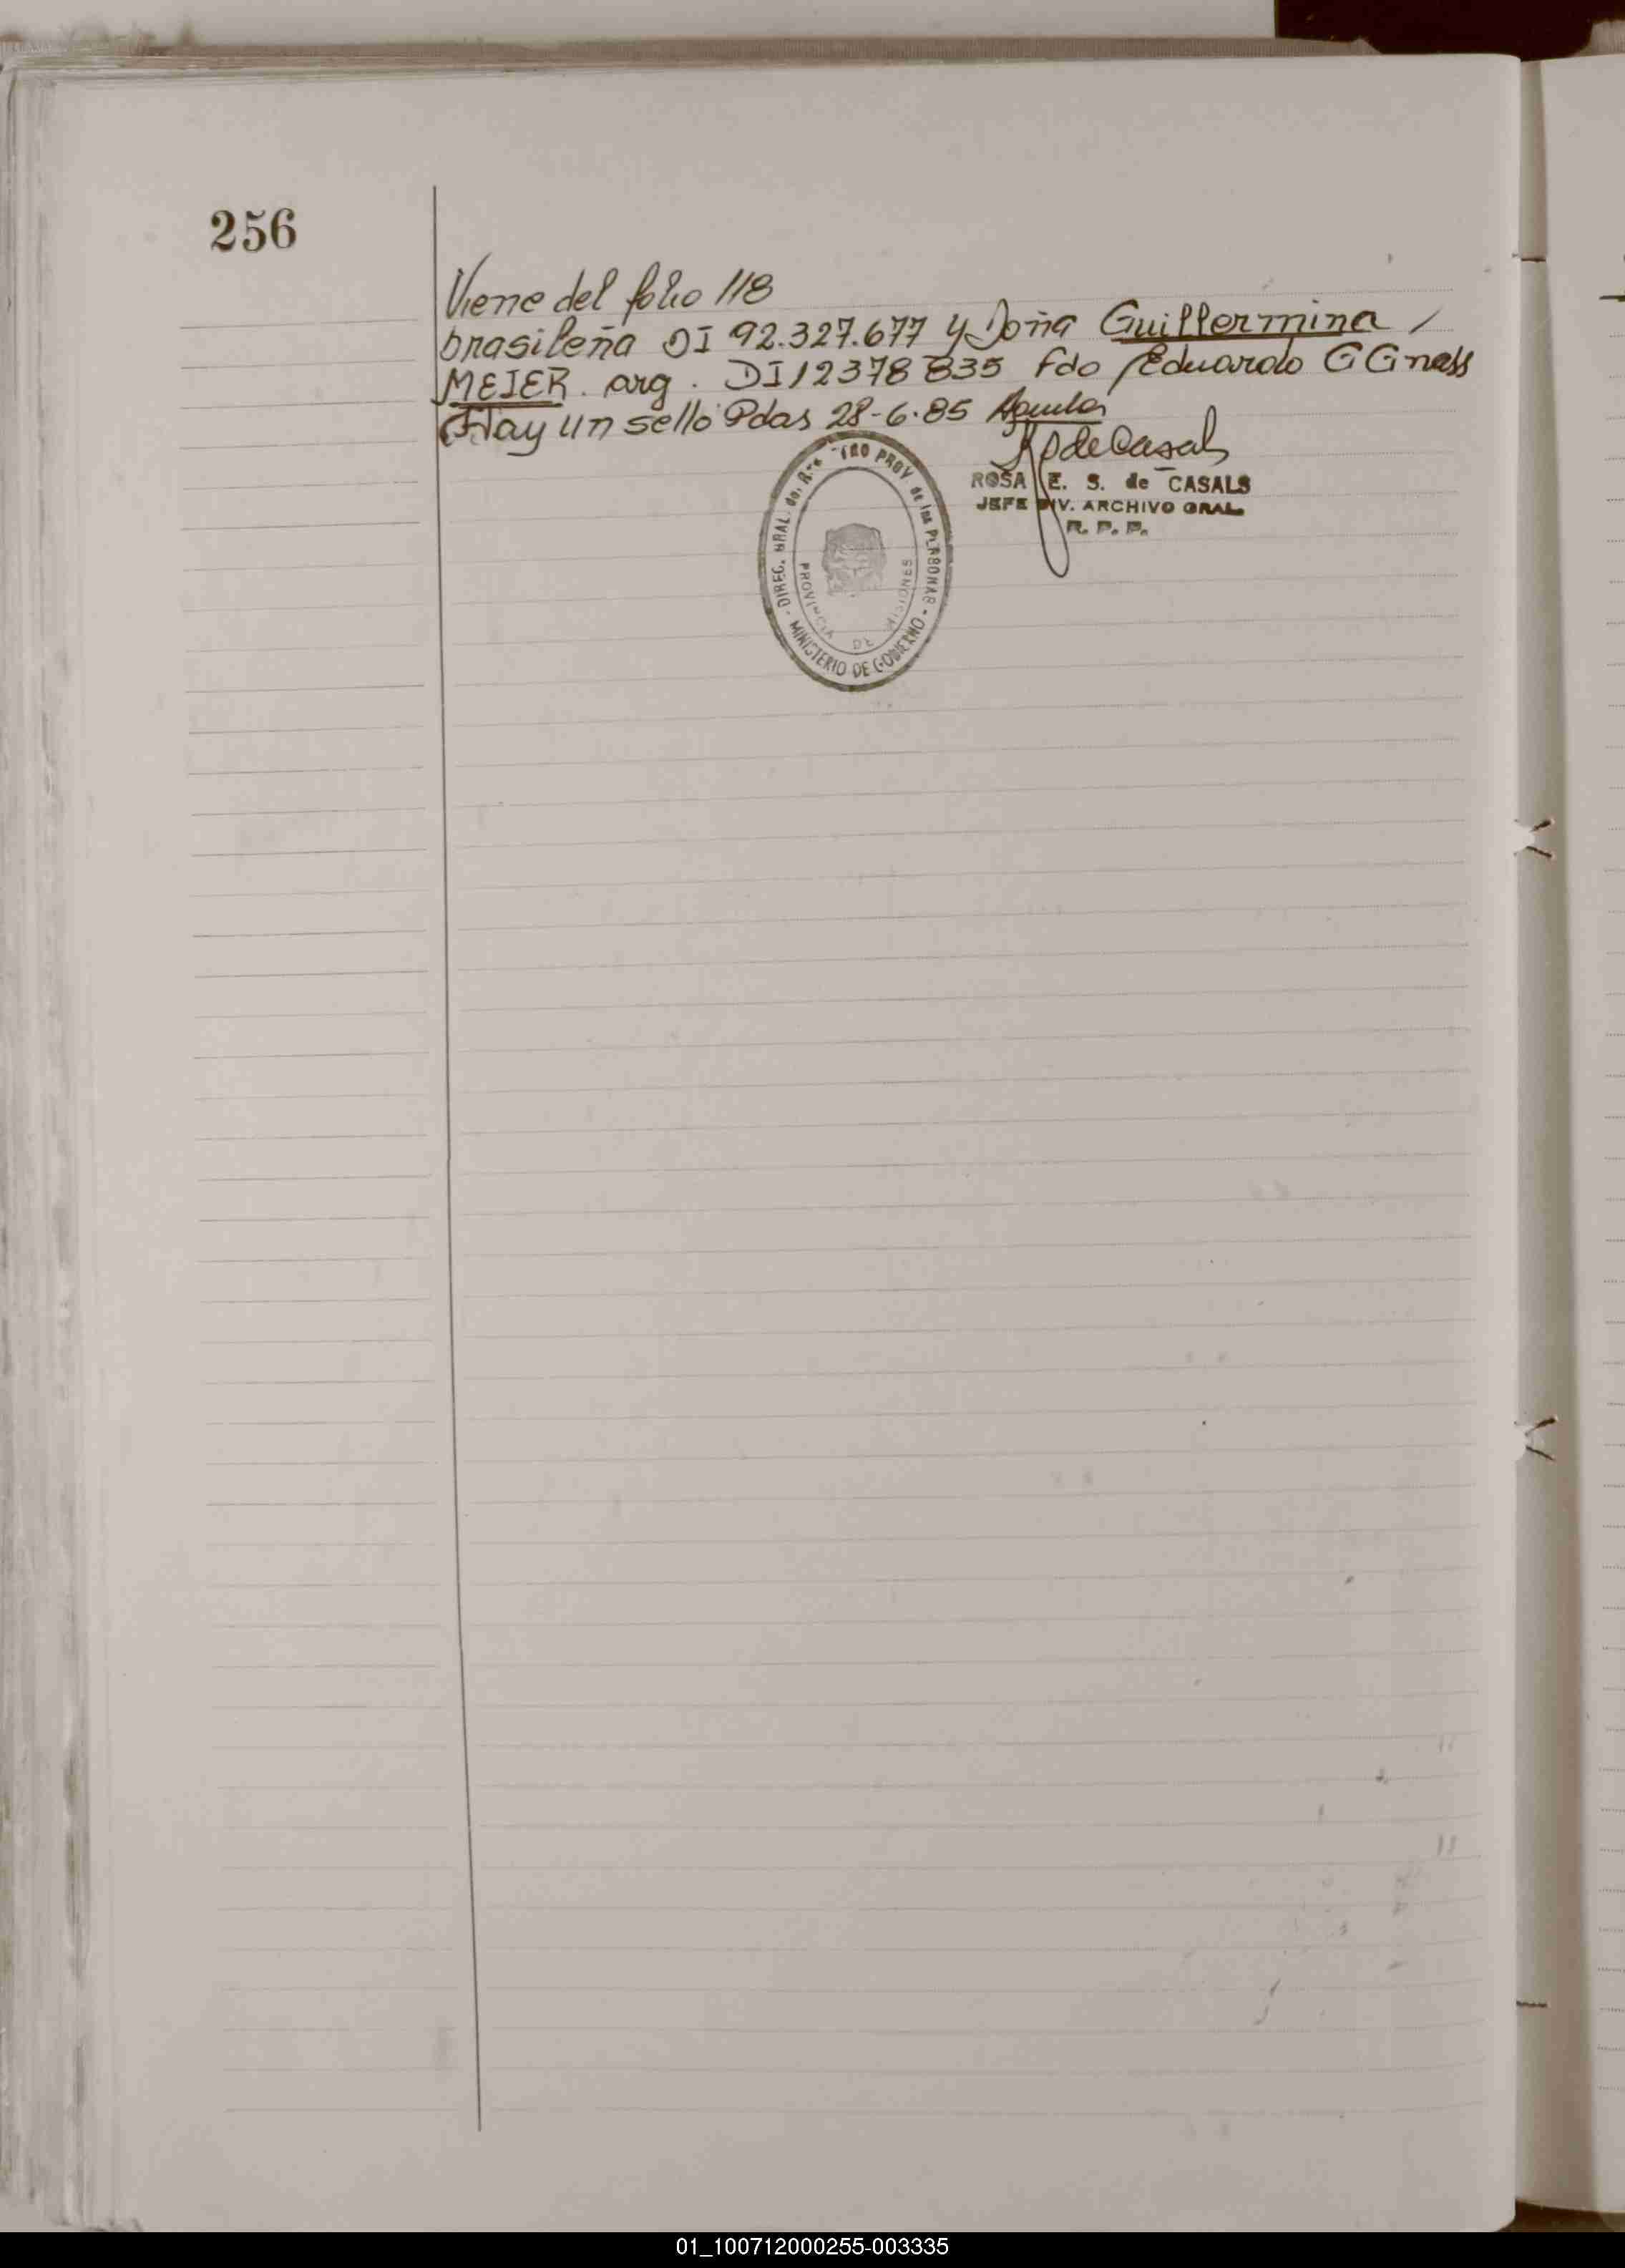 256
Viene del folio 118
brasileña DI 92.327.677 y Doña Guillermina /
MEIER. arg. DI 12378835 Fdo Eduardo G
Hay un sello Pdas 28-6-85
ROSA E. S. de CASALS
JEFE DIV. ARCHIVO GRAL.
R. P. P.
DIREC. GRAL. del PROV de las PERSONAS - MINISTERIO DE GOBIERNO -
PROVINCIA DE MISIONES
01_100712000255-003335